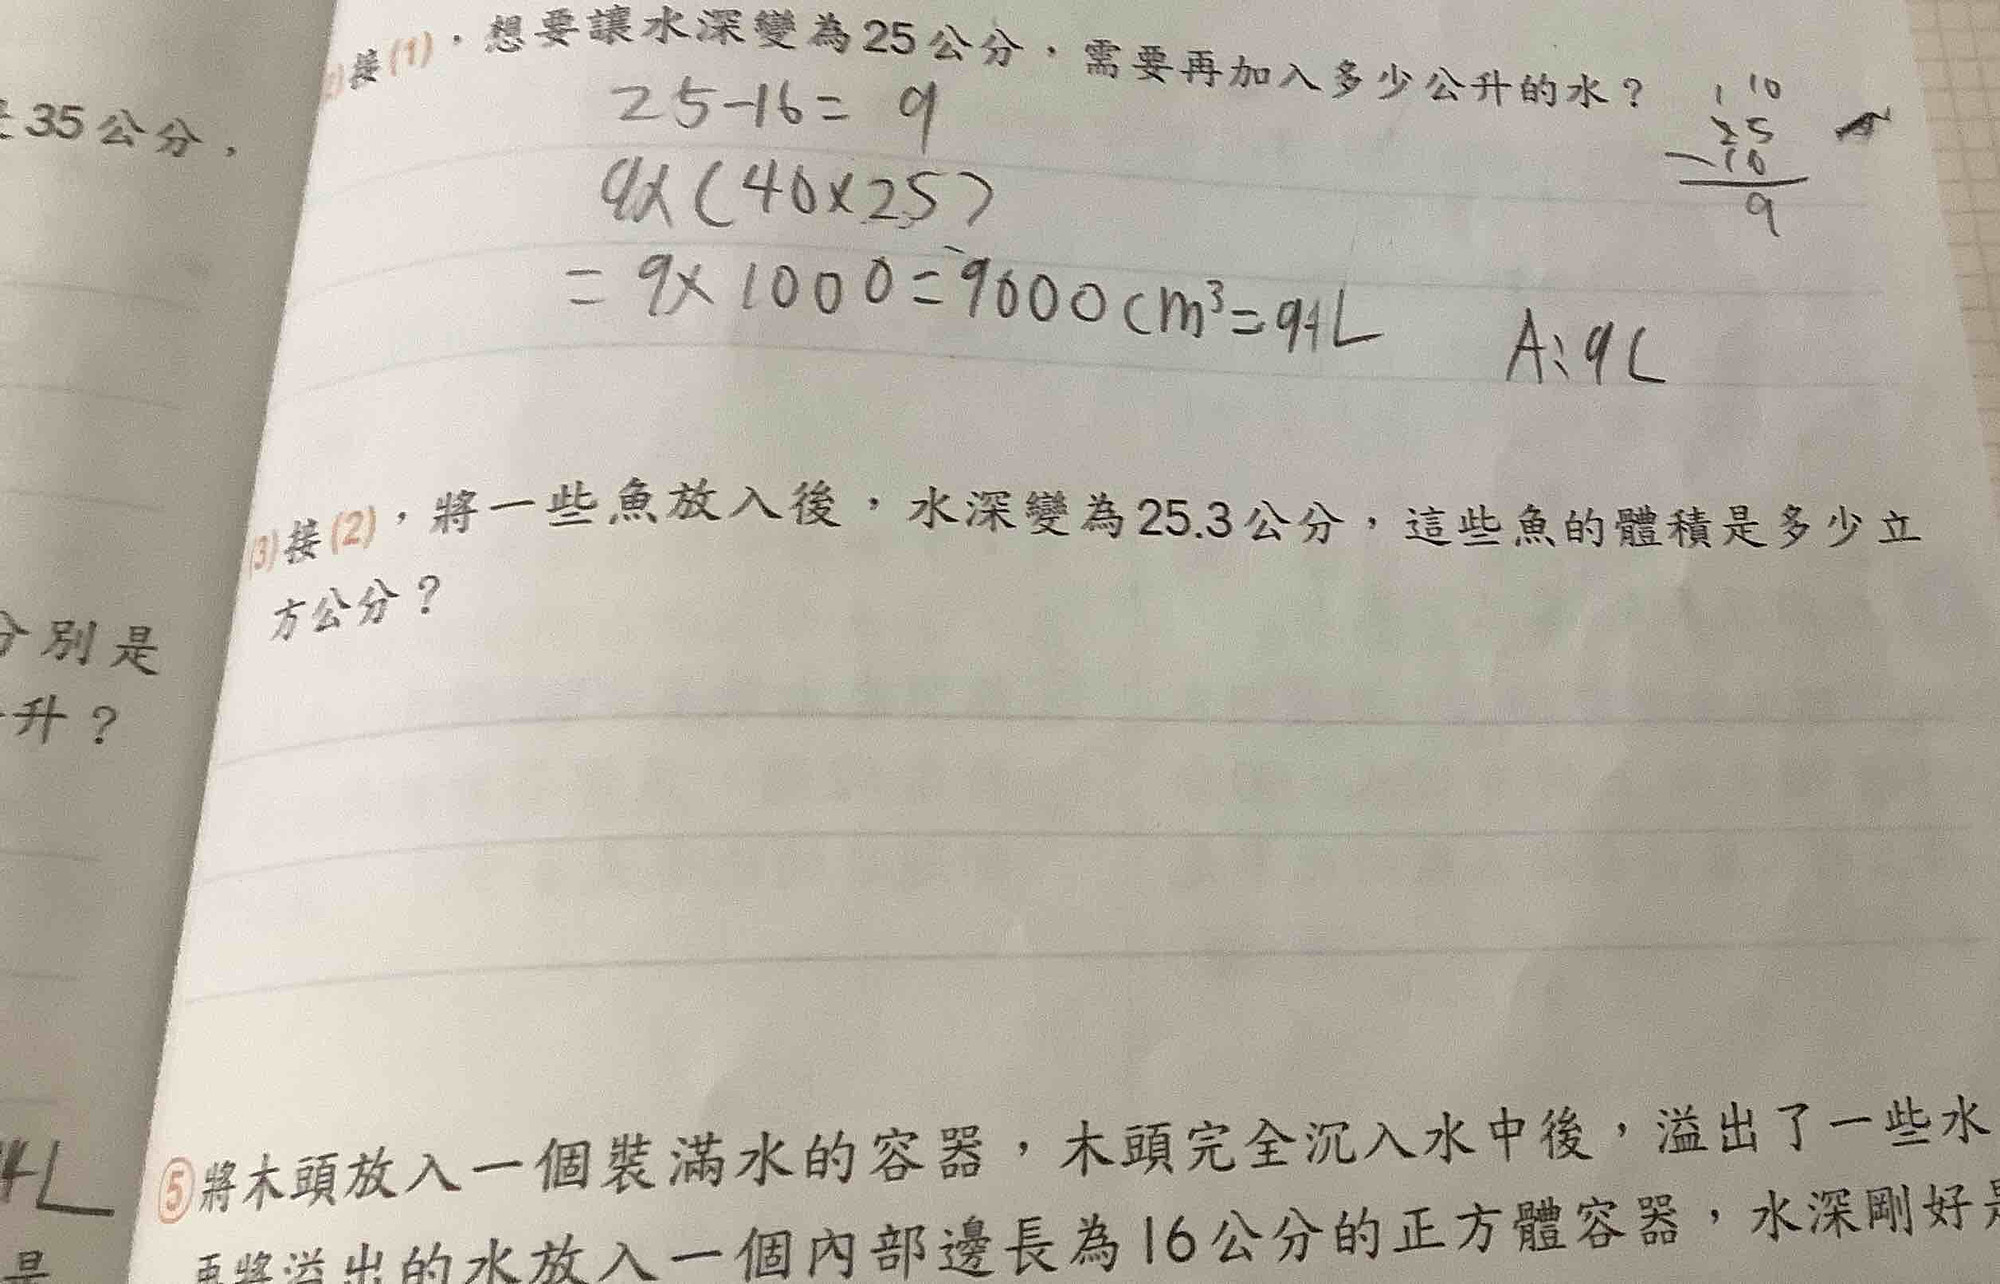 接(1)，想要讓水深變為25公分，需要再加入多少公升的水？
25-16=9
9x(40x25)
=9x1000=9000cm³=9L
A:9L
1 10
25
9
(3)接(2)，將一些魚放入後，水深變為25.3公分，這些魚的體積是多少立
方公分？
⑤將木頭放入一個裝滿水的容器，木頭完全沉入水中後，溢出了一些水
再將溢出的水放入一個內部邊長為16公分的正方體容器，水深剛好是
35公分，
分別是
升？
L
是